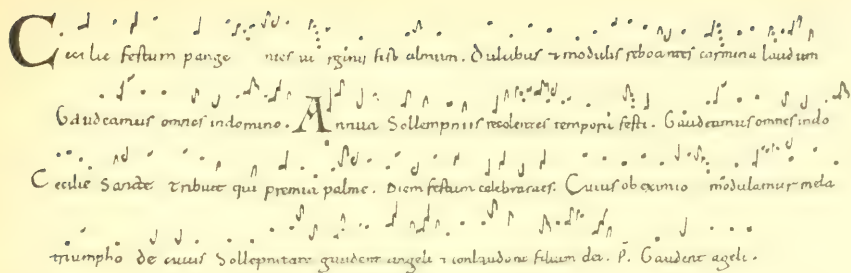 Cecilie festum pangentes uirginis hist almum. Dulubus ⁊ modulis reboantes carmina laudum
Gaudeamus omnes indomino. Annua Sollempniis recolentes temporis festi. Gaudeamus omnes indo
Cecilie Sancte tribuit qui premia palme. Diem festum celebrantes. Cuius ob eximio modulamur mela
triumpho de cuius Sollepnitate gaudent angeli ⁊ conlaudont filium dei. P. Gaudent ageli.